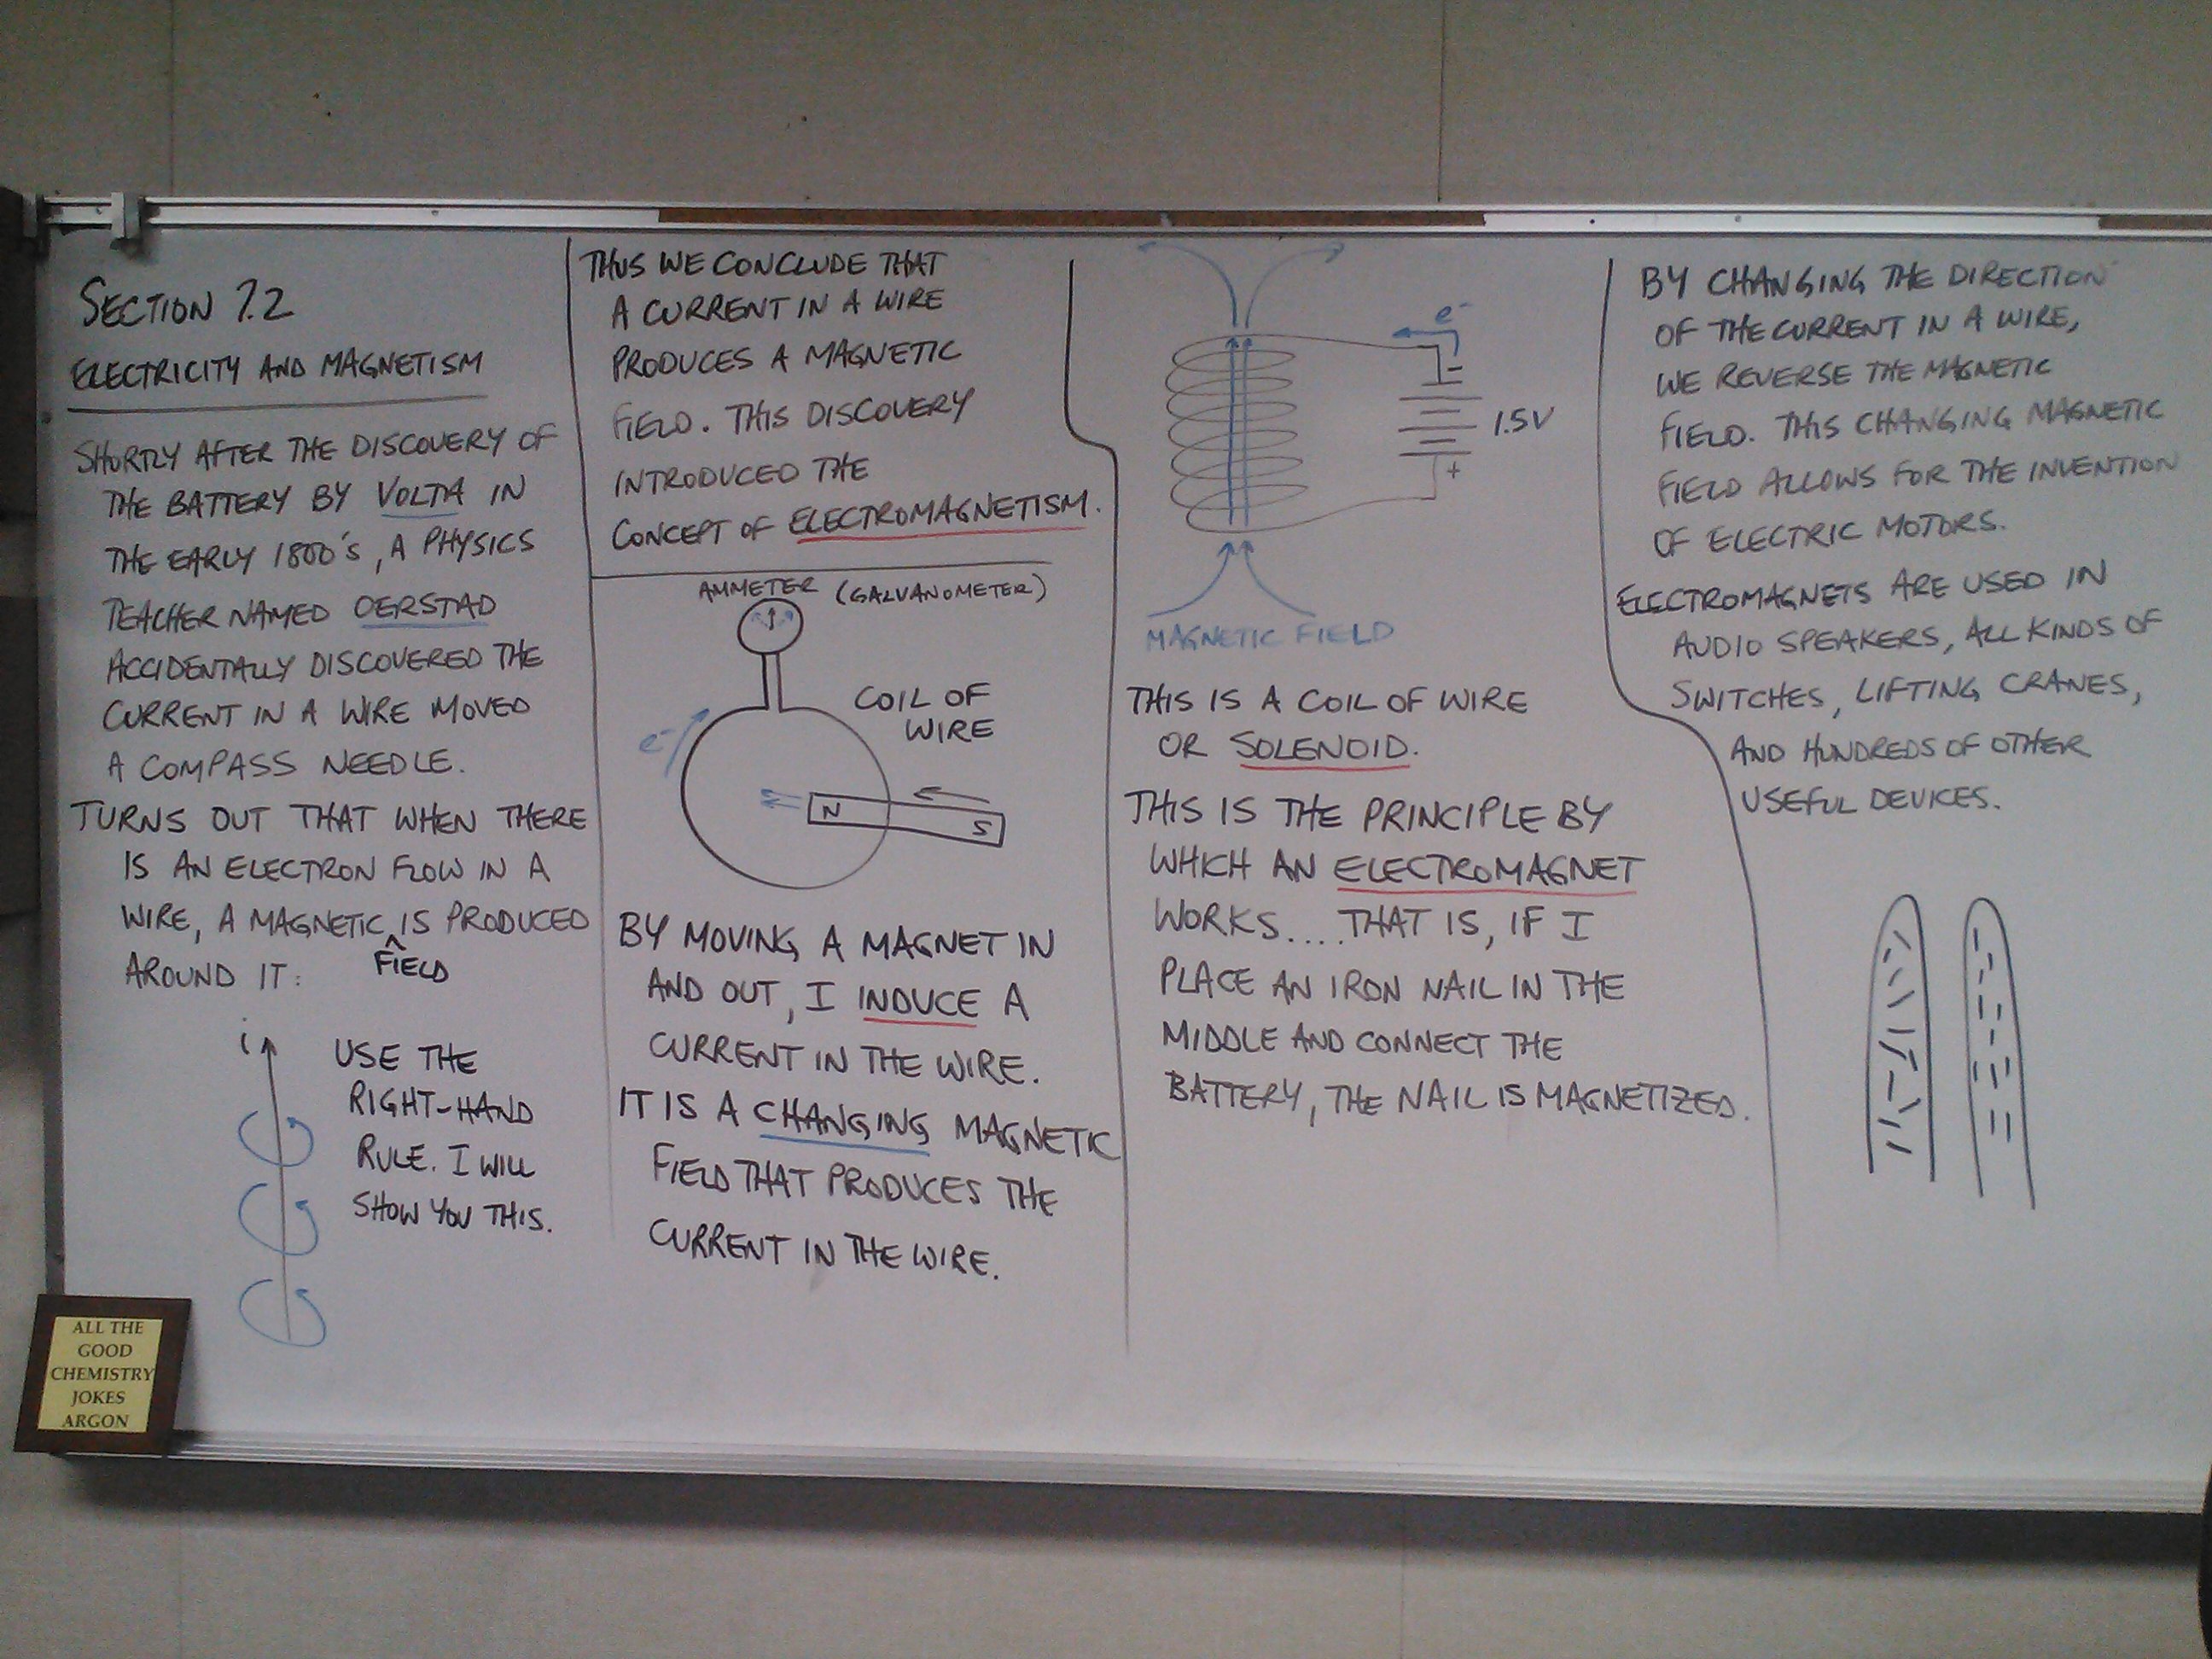 SECTION 7.2
ELECTRICITY AND MAGNETISM
SHORTLY AFTER THE DISCOVERY OF
THE BATTERY BY VOLTA IN
THE EARLY 1800'S, A PHYSICS
TEACHER NAMED OERSTAD
ACCIDENTALLY DISCOVERED THE
CURRENT IN A WIRE MOVED
A COMPASS NEEDLE.
TURNS OUT THAT WHEN THERE
IS AN ELECTRON FLOW IN A
WIRE, A MAGNETIC ^ IS PRODUCED
FIELD
AROUND IT:
i
USE THE
RIGHT-HAND
RULE. I WILL
SHOW YOU THIS.
ALL THE
GOOD
CHEMISTRY
JOKES
ARGON
THUS WE CONCLUDE THAT
A CURRENT IN A WIRE
PRODUCES A MAGNETIC
FIELD. THIS DISCOVERY
INTRODUCED THE
CONCEPT OF ELECTROMAGNETISM.
AMMETER (GALVANOMETER)
COIL OF
WIRE
e-
N S
BY MOVING A MAGNET IN
AND OUT, I INDUCE A
CURRENT IN THE WIRE.
IT IS A CHANGING MAGNETIC
FIELD THAT PRODUCES THE
CURRENT IN THE WIRE.
e-
-
1.5V
+
MAGNETIC FIELD
THIS IS A COIL OF WIRE
OR SOLENOID.
THIS IS THE PRINCIPLE BY
WHICH AN ELECTROMAGNET
WORKS....THAT IS, IF I
PLACE AN IRON NAIL IN THE
MIDDLE AND CONNECT THE
BATTERY, THE NAIL IS MAGNETIZED.
BY CHANGING THE DIRECTION
OF THE CURRENT IN A WIRE,
WE REVERSE THE MAGNETIC
FIELD. THIS CHANGING MAGNETIC
FIELD ALLOWS FOR THE INVENTION
OF ELECTRIC MOTORS.
ELECTROMAGNETS ARE USED IN
AUDIO SPEAKERS, ALL KINDS OF
SWITCHES, LIFTING CRANES,
AND HUNDREDS OF OTHER
USEFUL DEVICES.